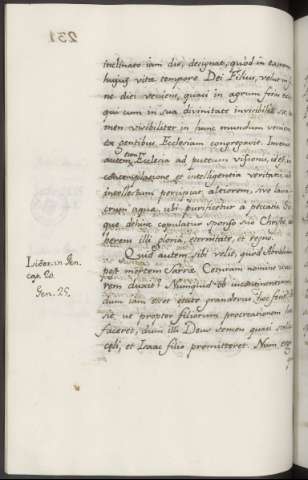 231
inclinato iam die, designat, quod in
huius vitæ tempore Dei Filius, velut in
ne diei veniens, quasi in agrum foris
qui cum in sua divinitate invisibilis
men visibiliter in hunc mundum
ex gentibus Ecclesiam congregavit.
autem Ecclesia ad puteum visionis, id est,
contemplatione et intelligentia veritatis,
intellectum percipiat altiorem, sive
crum aquæ, ubi purificetur à peccatis
que deinde copulatur sponso suo Christo,
herens illi gloria, æternitate, et regno.
Quid autem sibi velit, quod Abraham
post mortem Sarræ Cethuram nomine
rem duxit? Nunquid ob incontinentiam,
dum iam esset ætate grandævus
ut propter filiorum procreationem
faceret, dum illi Deus semen quasi
cæli, et Isaac filio promitteret. Nam
Liber in Gen.
cap. 20.
Gen. 25.